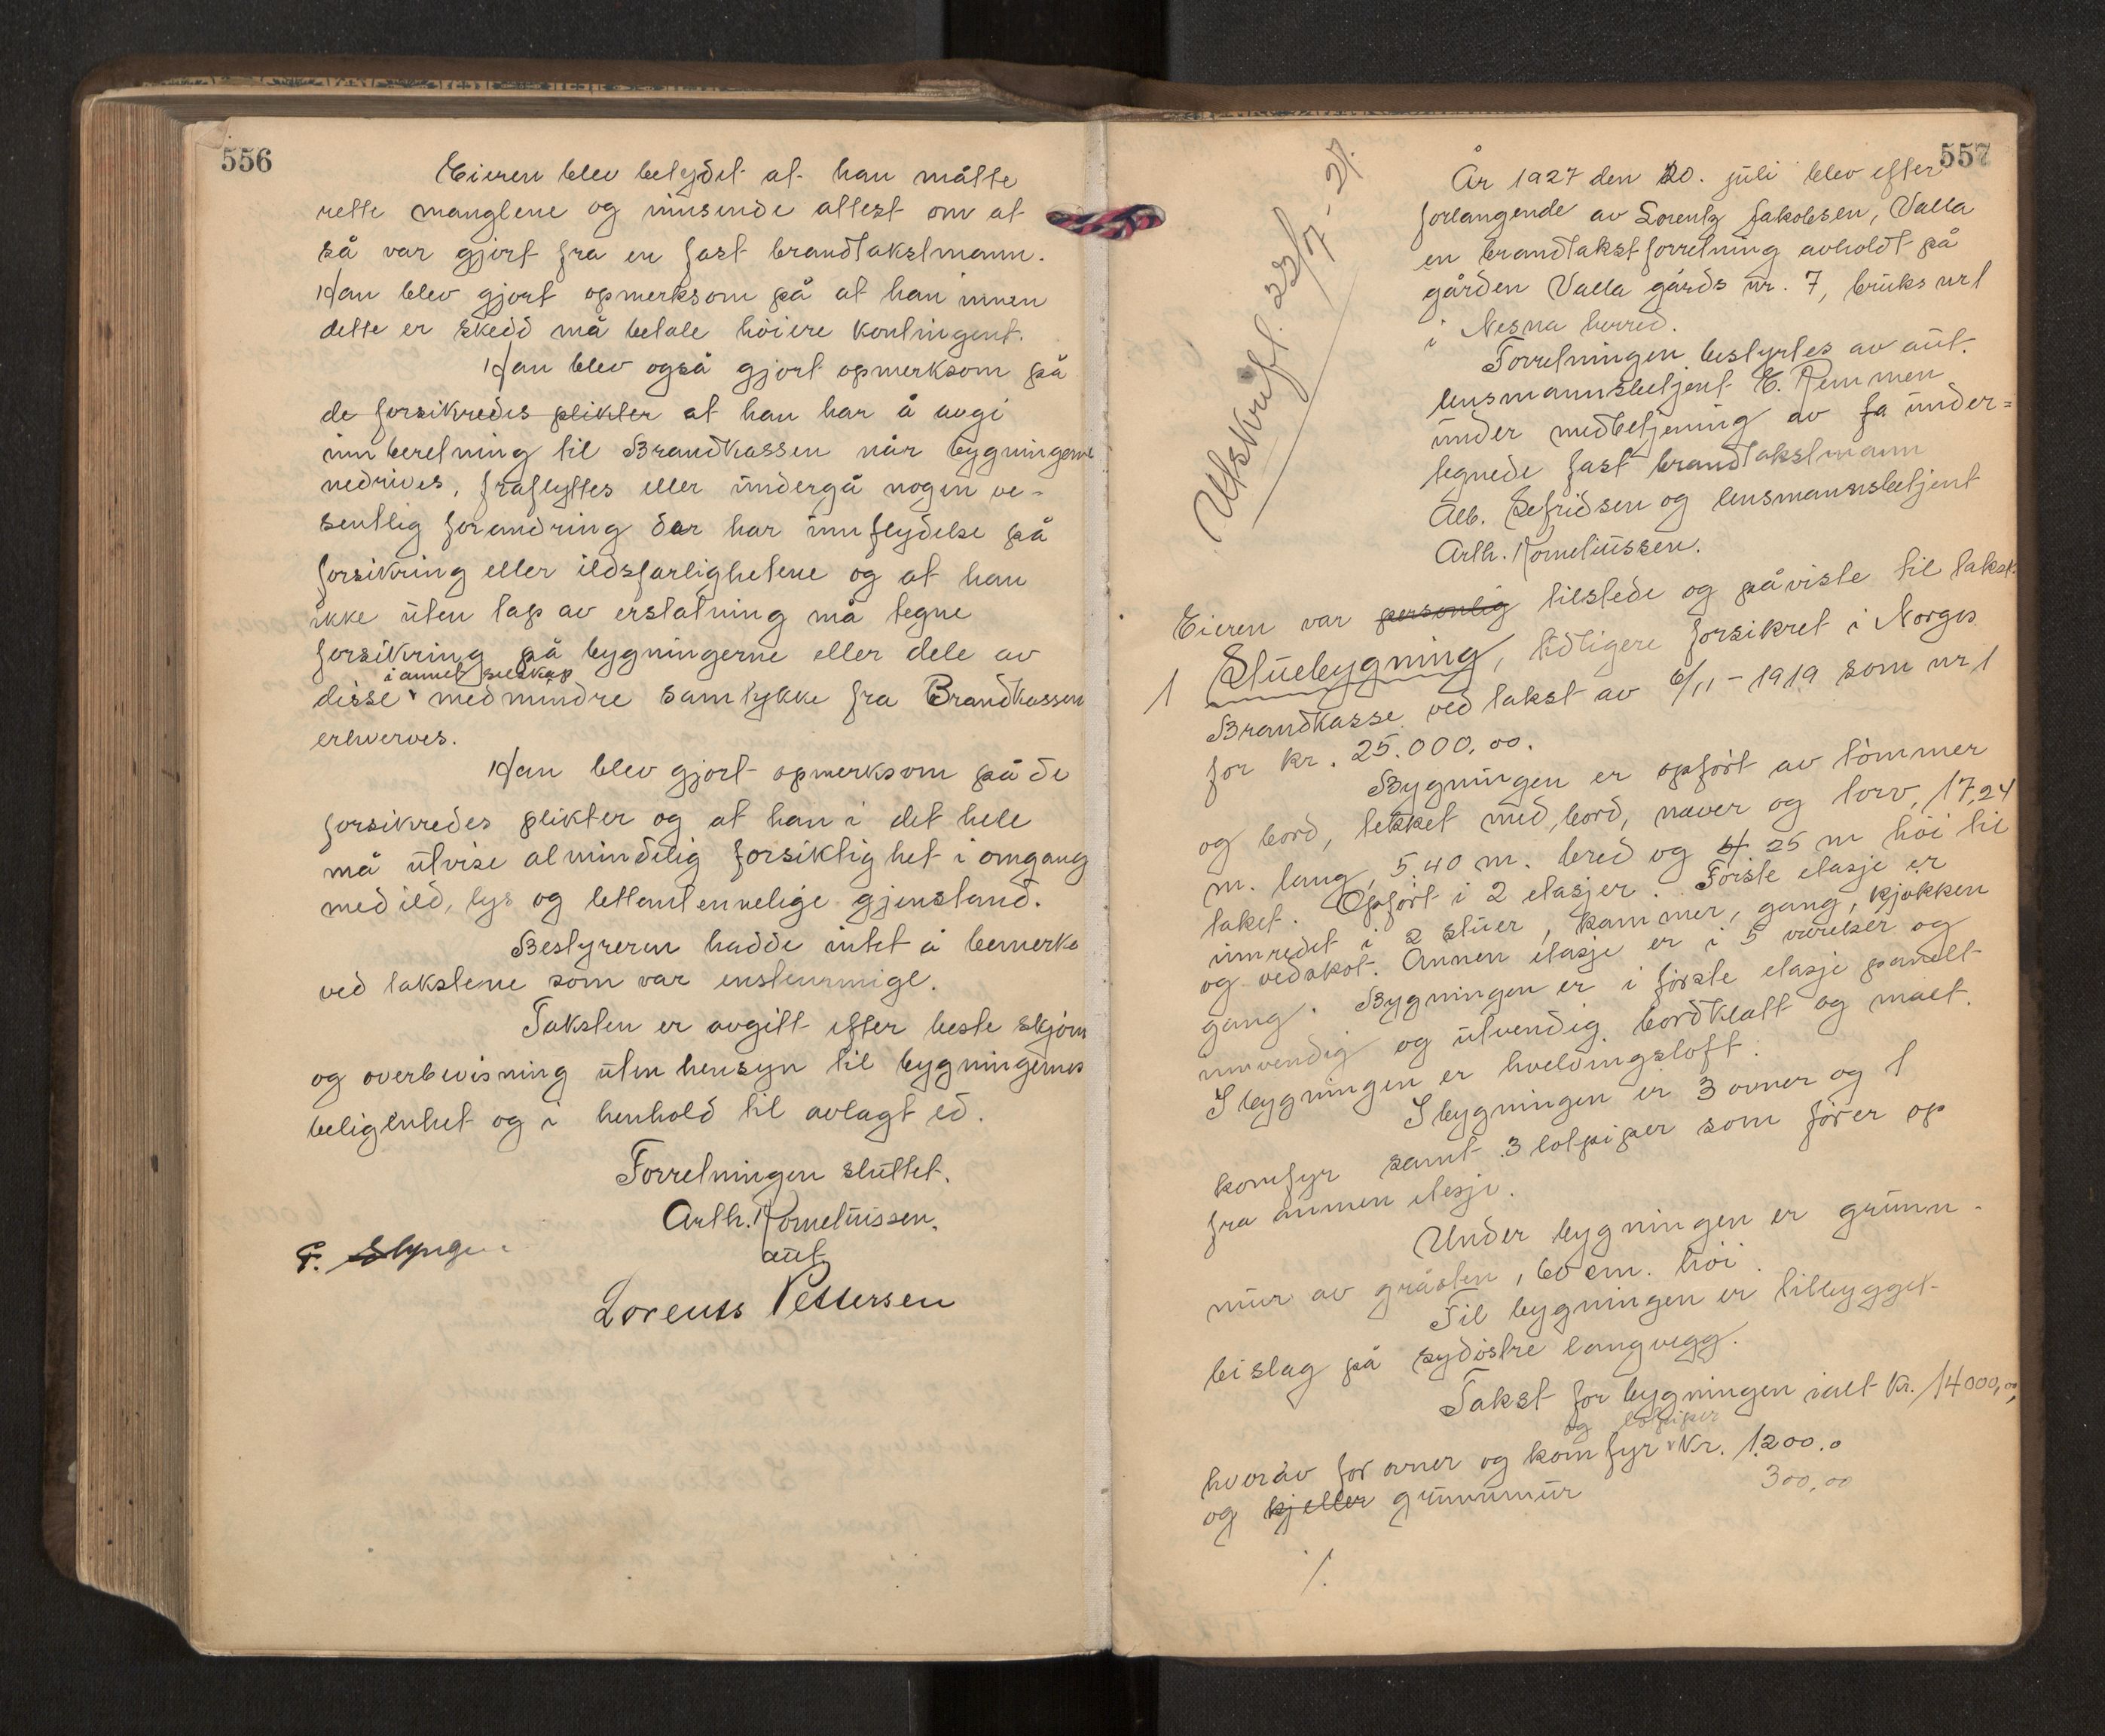 556
Eieren blev betydet at han måtte
rette manglene og innsende attest om at
så var gjort fra en fast brandtakstmann.
Han blev gjort opmerksom på at han innen
dette er skedd må betale höiere kontingent.
Han blev også gjort opmerksom på
de forsikredes plikter at han har å avgi
innberetning til Brandkassen når bygningerne
nedrives, fraflyttes eller undergå nogen ve-
sentlig forandring der har innflydelse på
forsikring eller ildsfarlighetene og at han
ikke uten tap av erstatning må tegne
forsikring på bygningerne eller dele av
i annet selskap
disse medmindre samtykke fra Brandkassen
erhverves.
Han blev gjort opmerksom på de
forsikredes plikter og at han i det hele
må utvise almindelig forsiktighet i omgang
med ild, lys og lettantennelige gjenstand.
Bestyreren hadde intet å bemerke
ved takstene som var enstemmige.
Taksten er avgitt efter beste skjönn
og overbevisning uten hensyn til bygningernes
beligenhet og i henhold til avlagt ed.
Forretningen sluttet.
Arth. Korneliussen.
aut.
Lorents Pettersen
557
Utskrift 23/7-27.
År 1927 den 20. juli blev efter
forlangende av Lorentz Jakobsen, Valla
en brandtakstforretning avholdt på
gården Valla gårds nr. 7, bruks nr 1
i Nesna herred.
Forretningen bestyrtes av aut.
lensmannsbetjent E. Remmen
under medbetjening av fa under=
tegnede fast brandtakstmann
Alb. Sefridsen og lensmannsbetjent
Arth. Korneliussen.
Eieren var personlig tilstede og påviste til takst:
1 Stuebygning, tidligere forsikret i Norges
Brandkasse ved takst av 6/11-1919 som nr 1
for kr. 25.000,00.
Bygningen er opfört av tömmer
og bord, tekket med bord, næver og torv, 17,24
m. lang, 5.40 m. bred og 4 25 m höi til
taket. Opfört i 2 etasjer. Förste etasje er
innredet i 2 stuer, kammer, gang, kjökken
og vedskot. Annen etasje er i 5 værelser og
gang. Bygningen er i förste etasje panelt
innvendig og utvendig bordklætt og malt.
I bygningen er hvelvingsloft.
I bygningen er 3 ovner og 1
komfyr samt 3 lotpiper som förer op
fra annen etasje.
Under bygningen er grunn-
mur av gråsten, 60 cm. höi.
Til bygningen er tilbygget
bislag på sydöstre langvegg.
Takst for bygningen ialt Kr. 14000,00,
og lotpiper
hverav for ovner og komfyr Kr. 1200.0
og kjeller grunnmur 300,00
/.